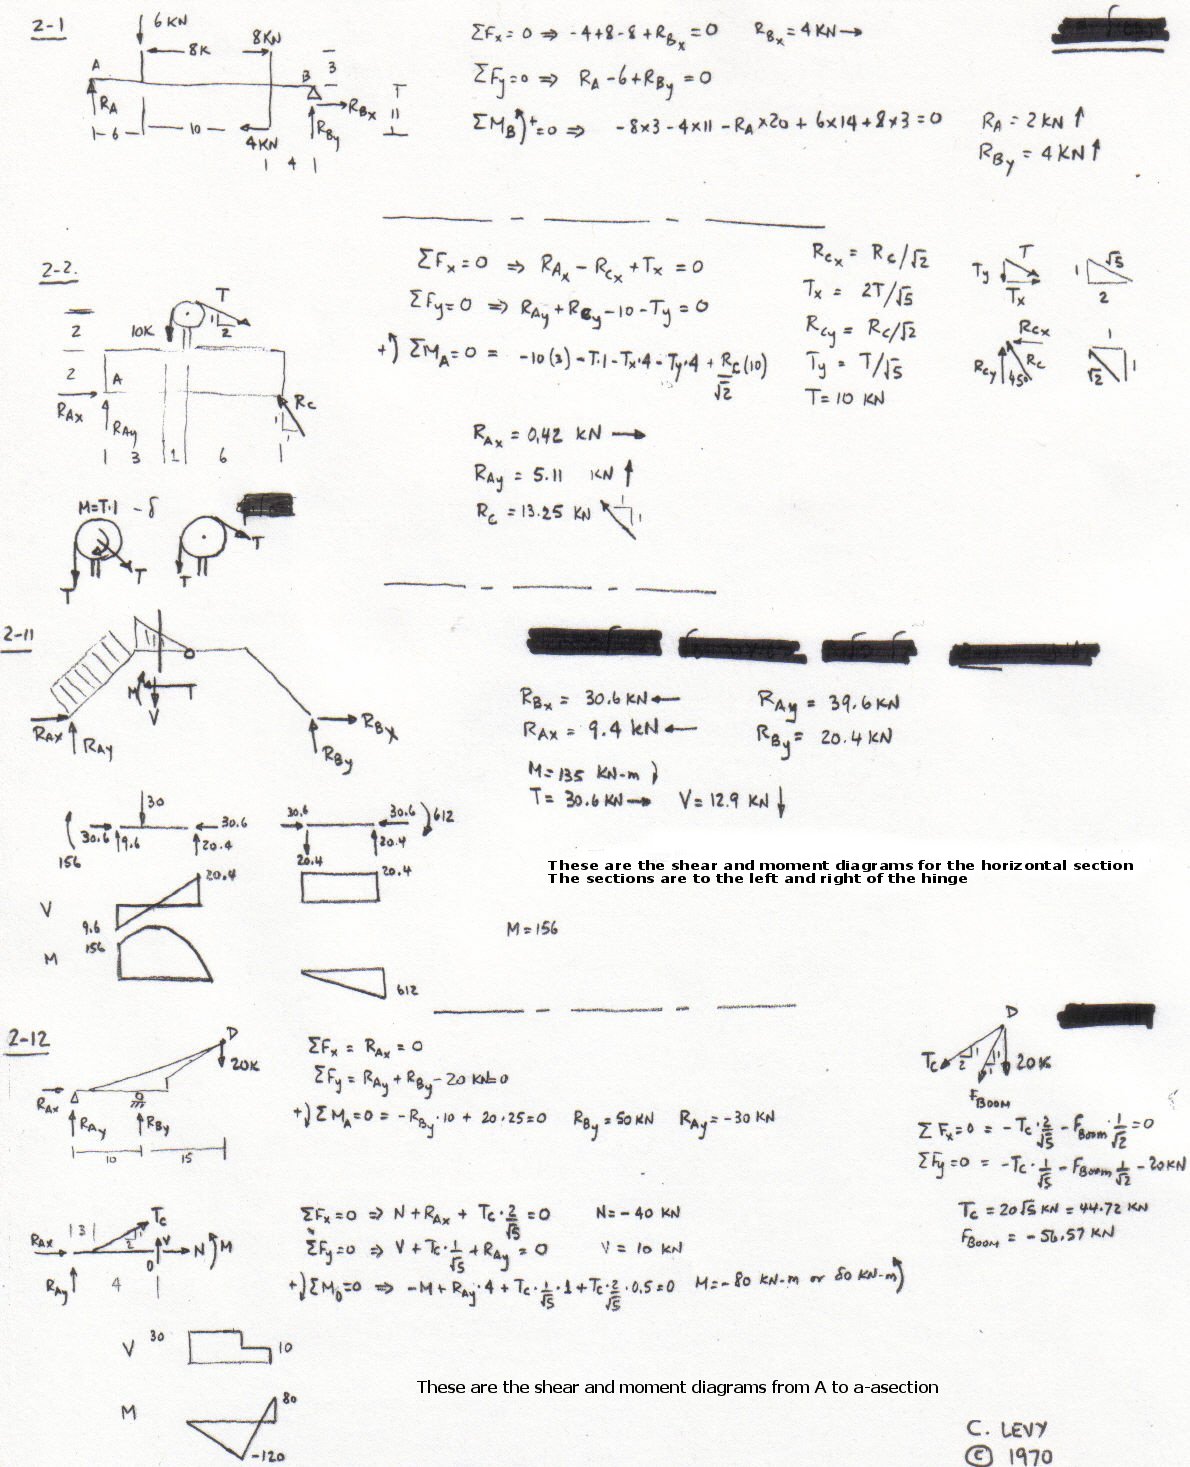 2-1
6 KN
8K
8KN
A
B
3
RA
RBx
11
6
10
4KN
RBy
4
ΣFx = 0 ⇒ -4+8-8+RBx = 0 RBx = 4 KN →
ΣFy = 0 ⇒ RA - 6 + RBy = 0
ΣMB)+ = 0 ⇒ -8x3 - 4x11 - RA x20 + 6x14 + 8x3 = 0 RA = 2 KN ↑
RBy = 4 KN ↑
2-2.
T
2
10K
1
2
2
A
RAx
RAy
Rc
1
1
3
1
6
ΣFx = 0 ⇒ RAx - Rcx + Tx = 0
ΣFy = 0 ⇒ RAy + Rcy - 10 - Ty = 0
+) ΣMA = 0 = -10(3) - T·1 - Tx·4 - Ty·4 + Rc(10)/√2
RAx = 0.42 KN →
RAy = 5.11 KN ↑
Rc = 13.25 KN
1
1
Rcx = Rc/√2
Tx = 2T/√5
Rcy = Rc/√2
Ty = T/√5
T = 10 KN
T
Ty
Tx
√5
1
2
Rcx
Rcy
Rc
45°
1
√2
1
M=T·1
T
T
T
T
2-11
M
T
V
RAx
RAy
RBx
RBy
RBx = 30.6 KN ← RAy = 39.6 KN
RAx = 9.4 KN ← RBy = 20.4 KN
M = 135 KN-m
T = 30.6 KN → V = 12.9 KN ↓
30
30.6
30.6
9.6
20.4
156
30.6
30.6
612
20.4
20.4
These are the shear and moment diagrams for the horizontal section
The sections are to the left and right of the hinge
V
20.4
20.4
9.6
M
156
M = 156
612
2-12
D
20K
RAx
RAy
RBy
10
15
ΣFx = RAx = 0
ΣFy = RAy + RBy - 20 KN = 0
+) ΣMA = 0 = -RBy·10 + 20·25 = 0 RBy = 50 KN RAy = -30 KN
D
Tc
2
1
1
1
20K
FBOOM
ΣFx = 0 = -Tc·2/√5 - FBoom·1/√2 = 0
ΣFy = 0 = -Tc·1/√5 - FBoom 1/√2 - 20 KN
Tc = 20√5 KN = 44.72 KN
FBOOM = -56.57 KN
3
Tc
RAx
2
1
V
N
M
O
RAy
4
ΣFx = 0 ⇒ N + RAx + Tc·2/√5 = 0 N = -40 KN
ΣFy = 0 ⇒ V + Tc·1/√5 + RAy = 0 V = 10 KN
+) ΣMO = 0 ⇒ -M + RAy·4 + Tc·1/√5·1 + Tc·2/√5·0.5 = 0 M = -80 KN-m or 80 KN-m)
V
30
10
M
80
-120
These are the shear and moment diagrams from A to a-asection
C. LEVY
© 1970